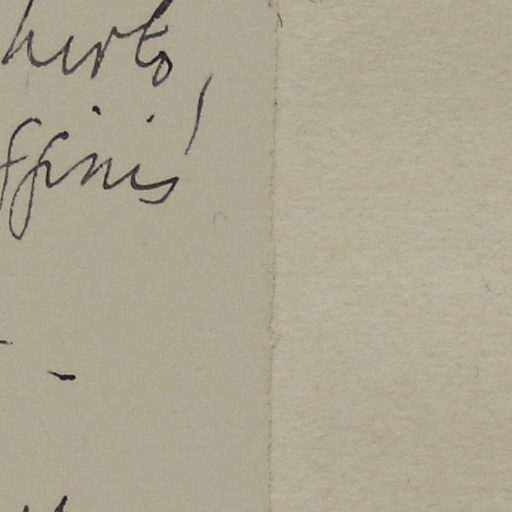 hirto,
ffinis